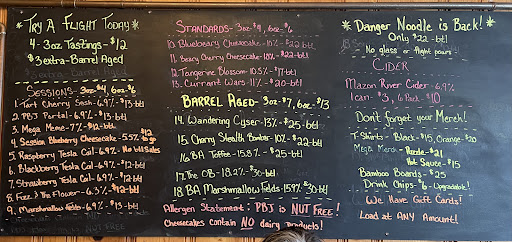 *TRY A FLIGHT TODAY*
4 - 3oz Tastings - $12
$3 extra - Barrel Aged
SESSIONS - 3oz $4, 6oz $6
1. Tart Cherry Sesh - 6.9% - $13 - btl
2. PBJ Portal - 6.9% - $13 - btl
3. Mega Meme - 7% - $12 - btl
4. Session Blueberry Cheesecake - 5.5% $12 to go
5. Raspberry Tesla Coil - 6.9% - No btl Sales
6. Blackberry Tesla Coil - 6.9% - $12 - btl
7. Strawberry Tesla Coil - 6.9% - $12 - btl
8. Fuzz & The Flower - 6.3% - $12 - btl
9. Marshmallow Fields - 6.9% - $13 - btl
STANDARDS - 3oz $4, 6oz $6
10. Blueberry Cheesecake - 10% - $22 - btl
11. Cherry Cheesecake - $22 - btl
12. Tangerine Blossom - 10.5% - $17 - btl
13. Currant Wars - 11% - $20 - btl
BARREL AGED - 3oz $7, 6oz $13
14. Wandering Cyser - 13% - $25 - btl
15. Cherry Stealth Bomber - 10% - $22 - btl
16 BA Toffee - 15.8% - $25 - btl
17. The OB - 18.2% - $30 - btl
18 BA Marshmallow Fields - 15.9% $30 - btl
Allergen Statement: PBJ is NUT FREE!
Cheesecakes contain NO dairy products!
*Danger Noodle is Back!*
Only $22 - btl
No glass or flight pours
CIDER
Mazon River Cider - 6.9%
1 can - $3, 6 Pack - $10
Don't forget your Merch!
T-Shirts - Black - $15, Orange - $20
Mega Merch - Puzzle - $21
Hot Sauce - $15
Bamboo Boards - $25
Drink Chips - $6 - Upgradable!
We Have Gift Cards!
Load at ANY Amount!